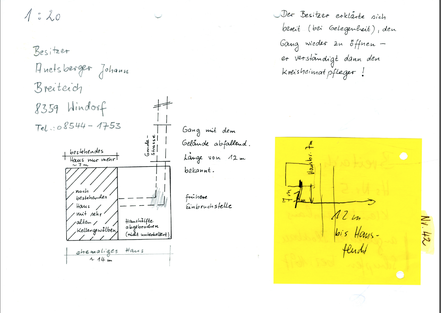 1 : 20
Besitzer
Anetsberger Johann
Breiteich
8359 Windorf
Tel.: 08544 - 1753
Der Besitzer erklärte sich
bereit (bei Gelegenheit), den
Gang wieder zu öffnen –
er verständigt dann den
Kreisheimatpfleger !
bestehendes
Haus nur mehr
Gang mit dem
Gelände abfallend.
Länge von 12 m
bekannt.
frühere
Einbruchstelle
noch
bestehendes
Haus
mit sehr
alten
Kellergewölben
Haushälfte
abgebrochen
ehemaliges Haus
14 m
12 m
bis Haus-
flucht
Nr. 42